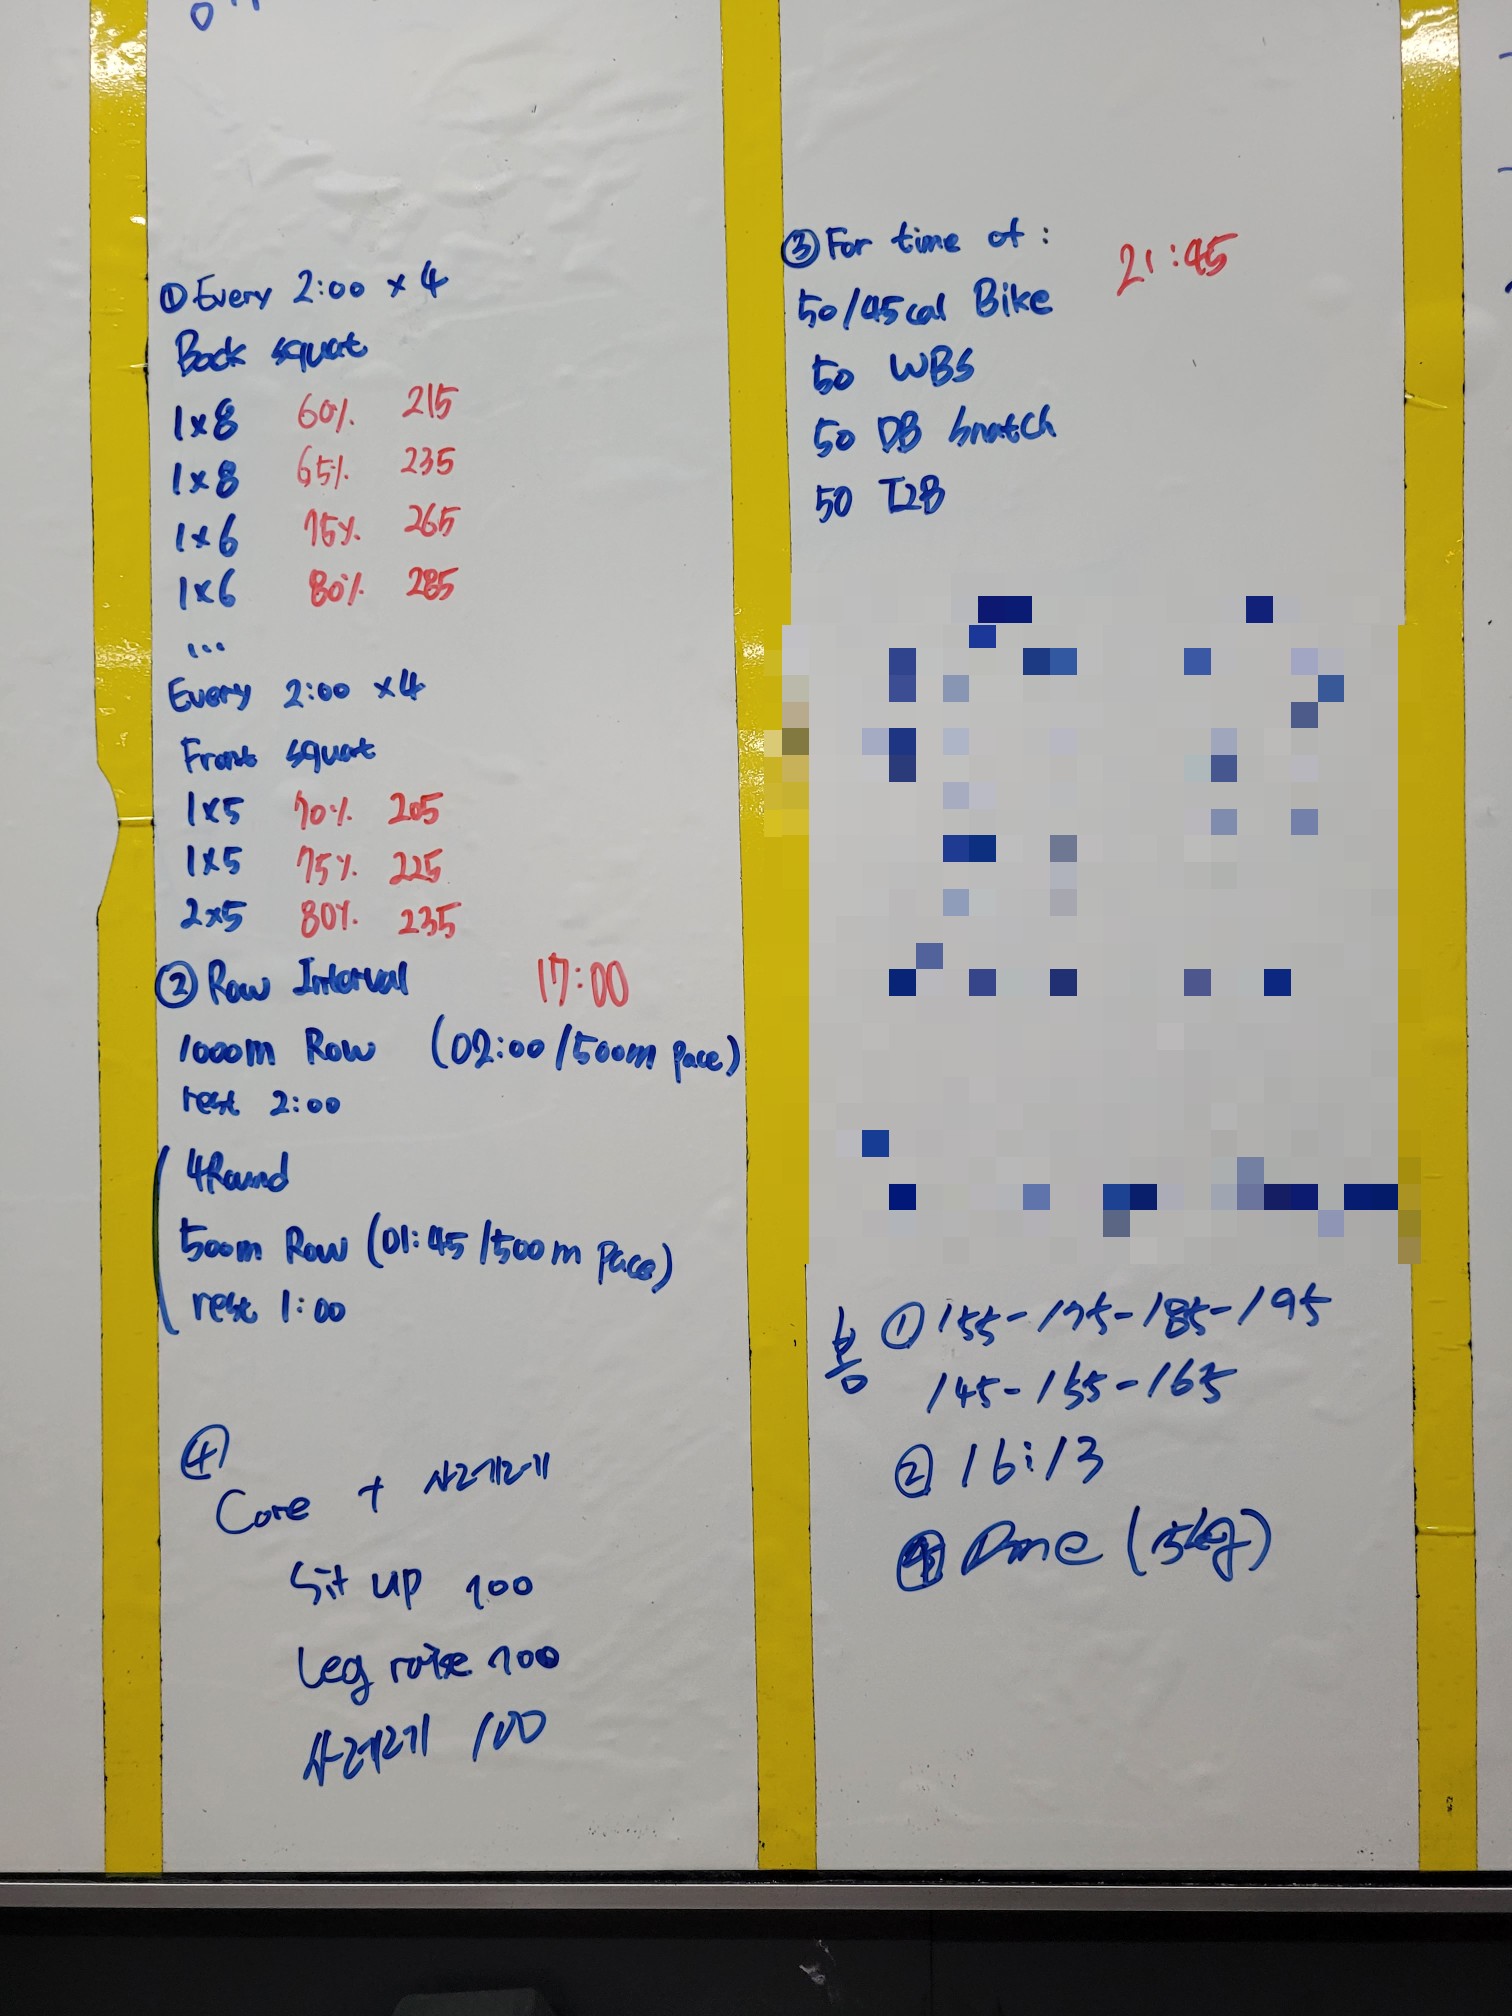 ① Every 2:00 x 4
Back squat
1x8 60% 215
1x8 65% 235
1x6 75% 265
1x6 80% 285
...
Every 2:00 x4
Front squat
1x5 70% 205
1x5 75% 225
2x5 80% 235
② Row Interval 17:00
1000m Row (02:00/500m pace)
rest 2:00
4Round
500m Row (01:45/500m pace)
rest 1:00
④
Core + 사레레
Sit up 100
Leg raise 100
사레레 100
③ For time of : 21:45
50/45cal Bike
50 WBS
50 DB snatch
50 T2B
봉 ① 155-175-185-195
145-155-165
② 16:13
④ Done (15kg)